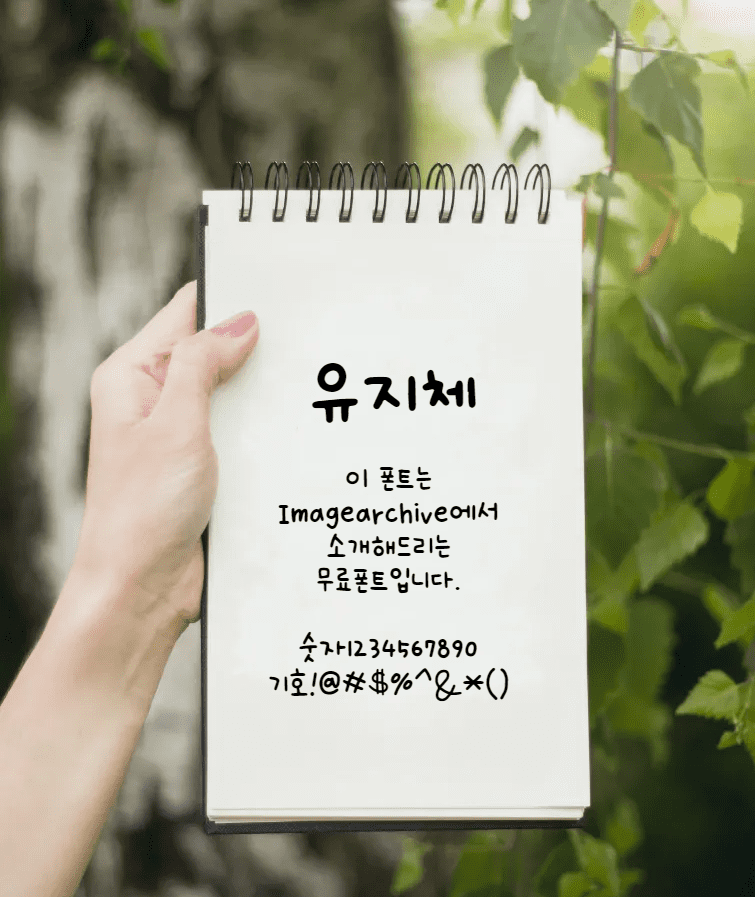 유지체
이 폰트는
Imagearchive에서
소개해드리는
무료폰트입니다.
숫자1234567890
기호!@#$%^&*()